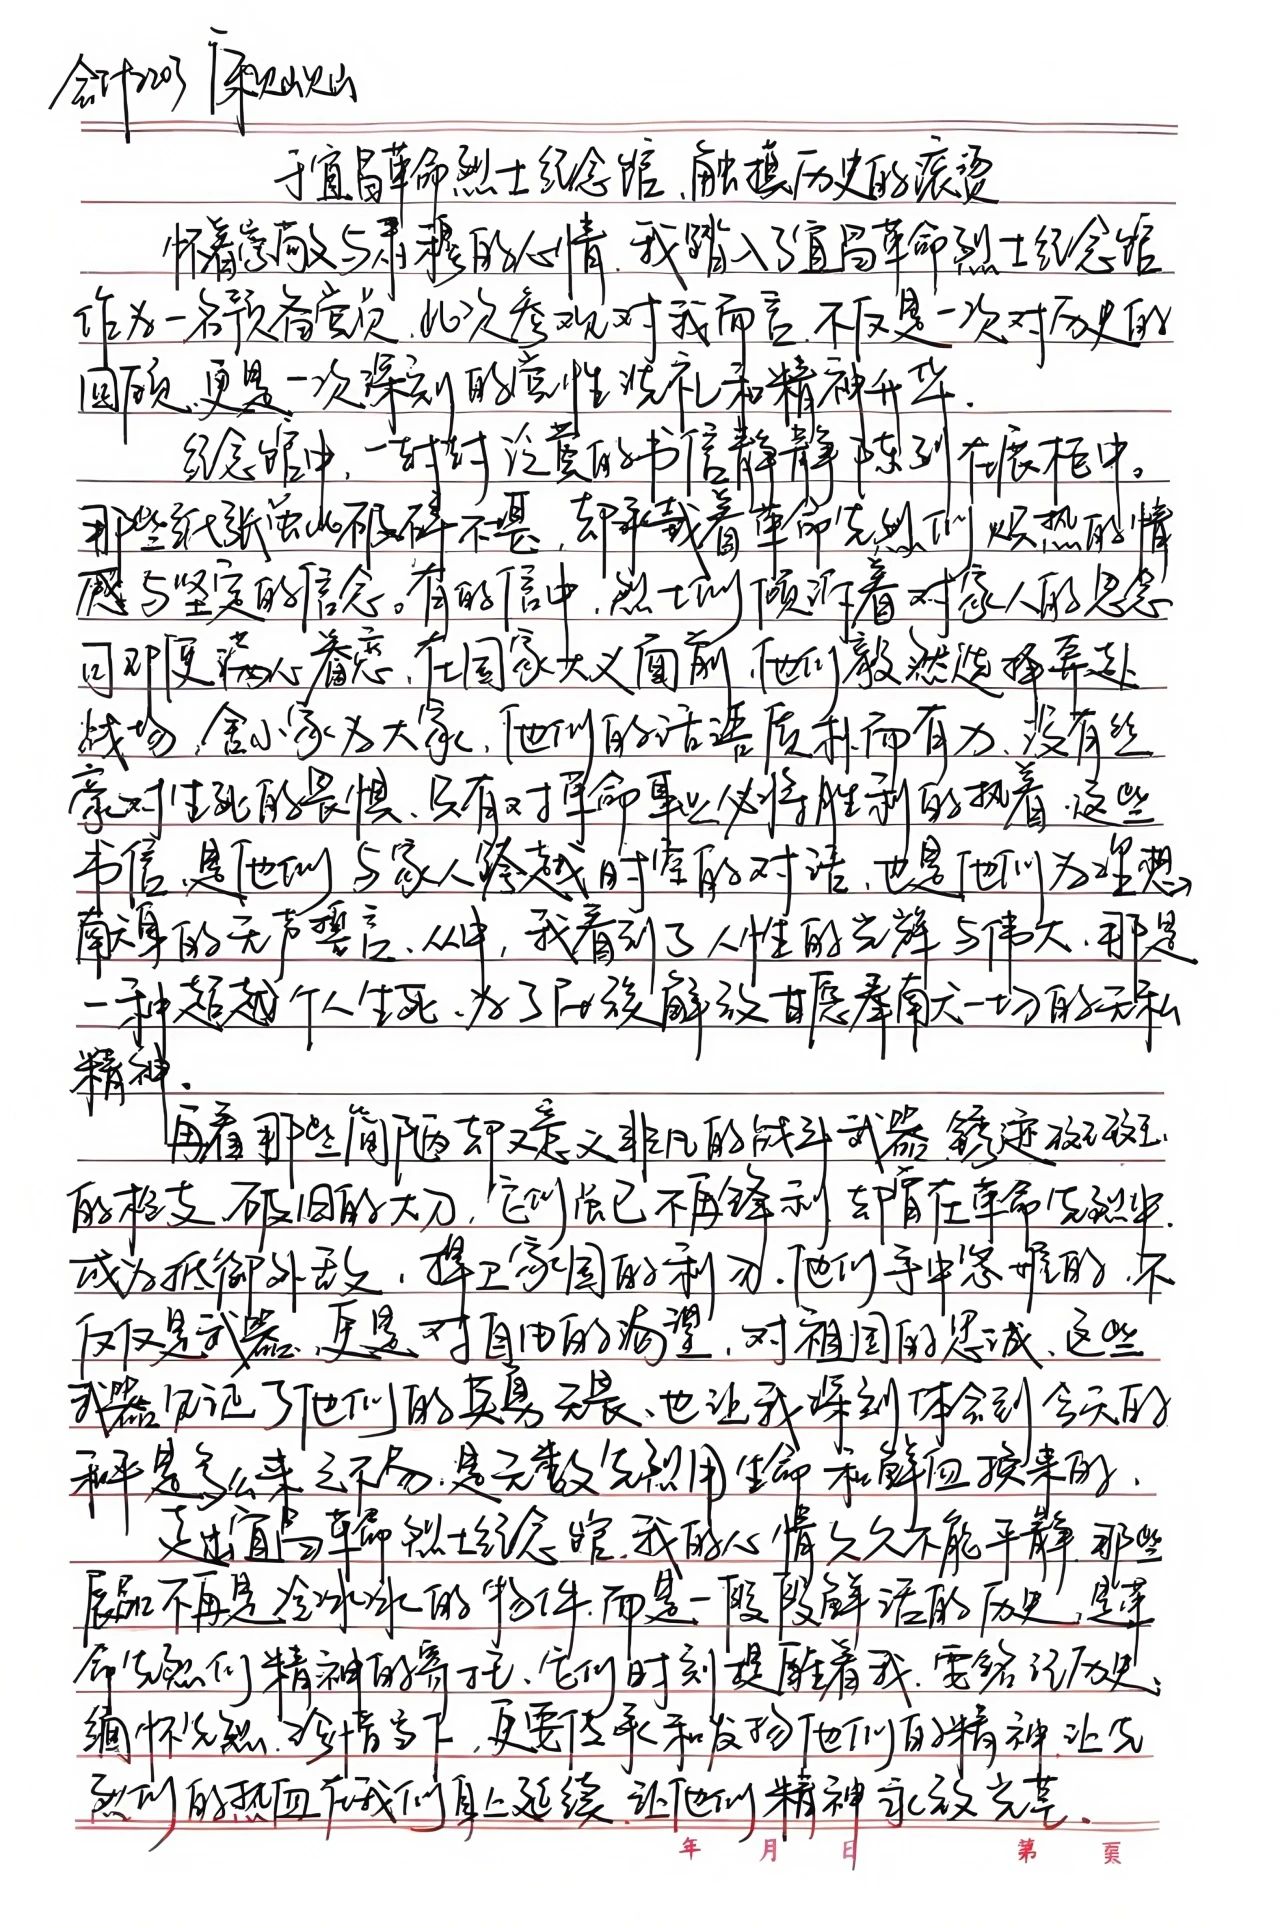 会计2203
于宜昌革命烈士纪念馆、触摸历史的滚烫
怀着崇敬与肃穆的心情、我踏入了宜昌革命烈士纪念馆
作为一名预备党员、此次参观对我而言、不仅是一次对历史的
回顾、更是一次深刻的党性洗礼和精神升华.
纪念馆中，一封封泛黄的书信静静陈列在展柜中。
那些纸张虽此破碎不堪，却承载着革命先烈们炽热的情
感与坚定的信念。有的信中、烈士们倾诉着对家人的思念
可即便满心眷恋、在国家大义面前、他们毅然选择奔赴
战场，舍小家为大家、他们的话语质朴而有力、没有丝
毫对生死的畏惧、只有对革命事业必将胜利的执着、这些
书信、是他们与家人跨越时空的对话、也是他们为理想
献身的无声誓言、从中，我看到了人性的光辉与伟大、那是
一种超越个人生死、为了民族解放甘愿奉献一切的无私
精神.
再看那些简陋却又意义非凡的战斗武器、锈迹斑斑
的枪支、破旧的大刀，它们虽已不再锋利、却曾在革命先烈中、
成为抵御外敌，捍卫家园的利刃、他们手中紧握的、不
仅仅是武器、更是对自由的渴望、对祖国的忠诚、这些
武器见证了他们的英勇无畏、也让我深刻体会到今天的
和平是多么来之不易、是无数先烈用生命和鲜血换来的、
走出宜昌革命烈士纪念馆、我的心情久久不能平静、那些
展品不再是冷冰冰的物件、而是一段段鲜活的历史，是革
命先烈们精神的寄托、它们时刻提醒着我、要铭记历史、
缅怀先烈、珍惜当下，更要传承和发扬他们的精神、让先
烈们的热血在我们身上延续、让他们精神永放光芒.
年 月 日 第 页